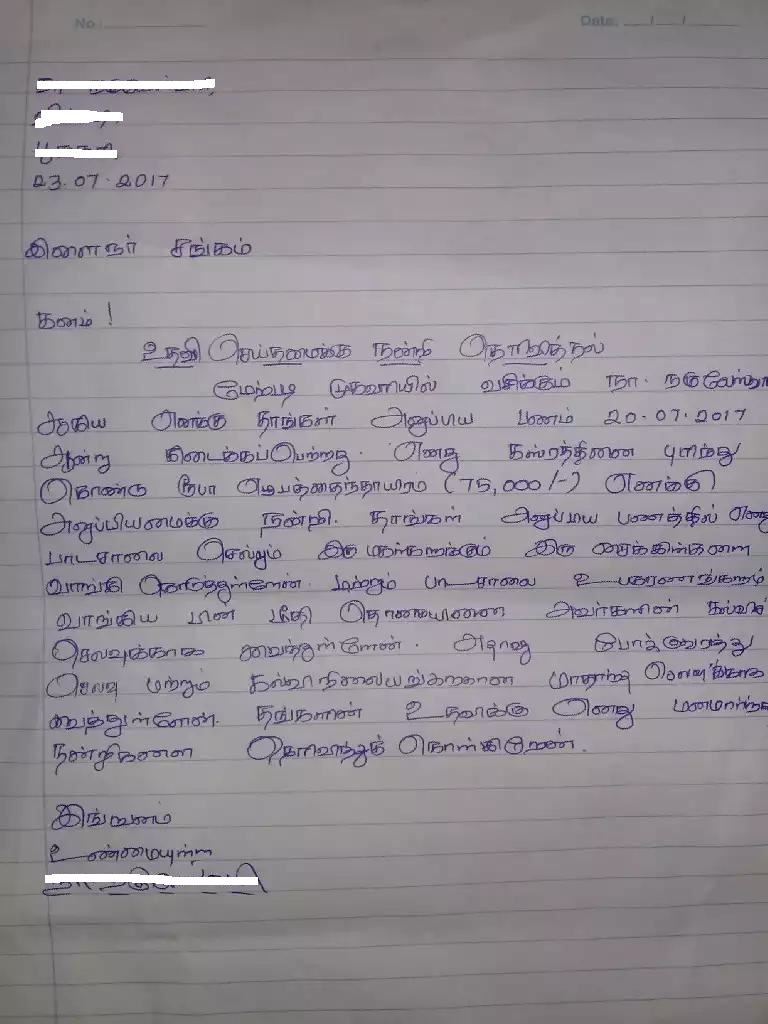 No :
Date: / /
23.07.2017
இளைஞர் சங்கம்
கனம் !
உதவி செய்தமைக்கு நன்றி தெரிவித்தல்
மேற்படி முகவரியில் வசிக்கும் நா.
ஆகிய எனக்கு தாங்கள் அனுப்பிய பணம் 20.07.2017
அன்று கிடைக்கப்பெற்றது. எனது கஸ்ரத்தினை புரிந்து
கொண்டு ரூபா எழுபத்தைந்தாயிரம் (75,000/-) எனக்கு
அனுப்பியமைக்கு நன்றி. தாங்கள் அனுப்பிய பணத்தில் எனது
பாடசாலை செல்லும் இரு மகள்களுக்கும் இரு சைக்கிள்களை
வாங்கி கொடுத்துள்ளேன். மற்றும் பாடசாலை உபகரணங்களும்
வாங்கிய பின் மீதி தொகையினை அவர்களின் கல்வி
செலவுக்காக வைத்துள்ளேன். அதாவது போக்குவரத்து
செலவு மற்றும் கல்வி நிலையங்களுக்கான மாதாந்த செலவுக்காக
வைத்துள்ளேன். தங்களின் உதவிக்கு எனது மனமார்ந்த
நன்றிகளை தெரிவித்துக் கொள்கிறேன்.
இங்ஙனம்
உண்மையுள்ள